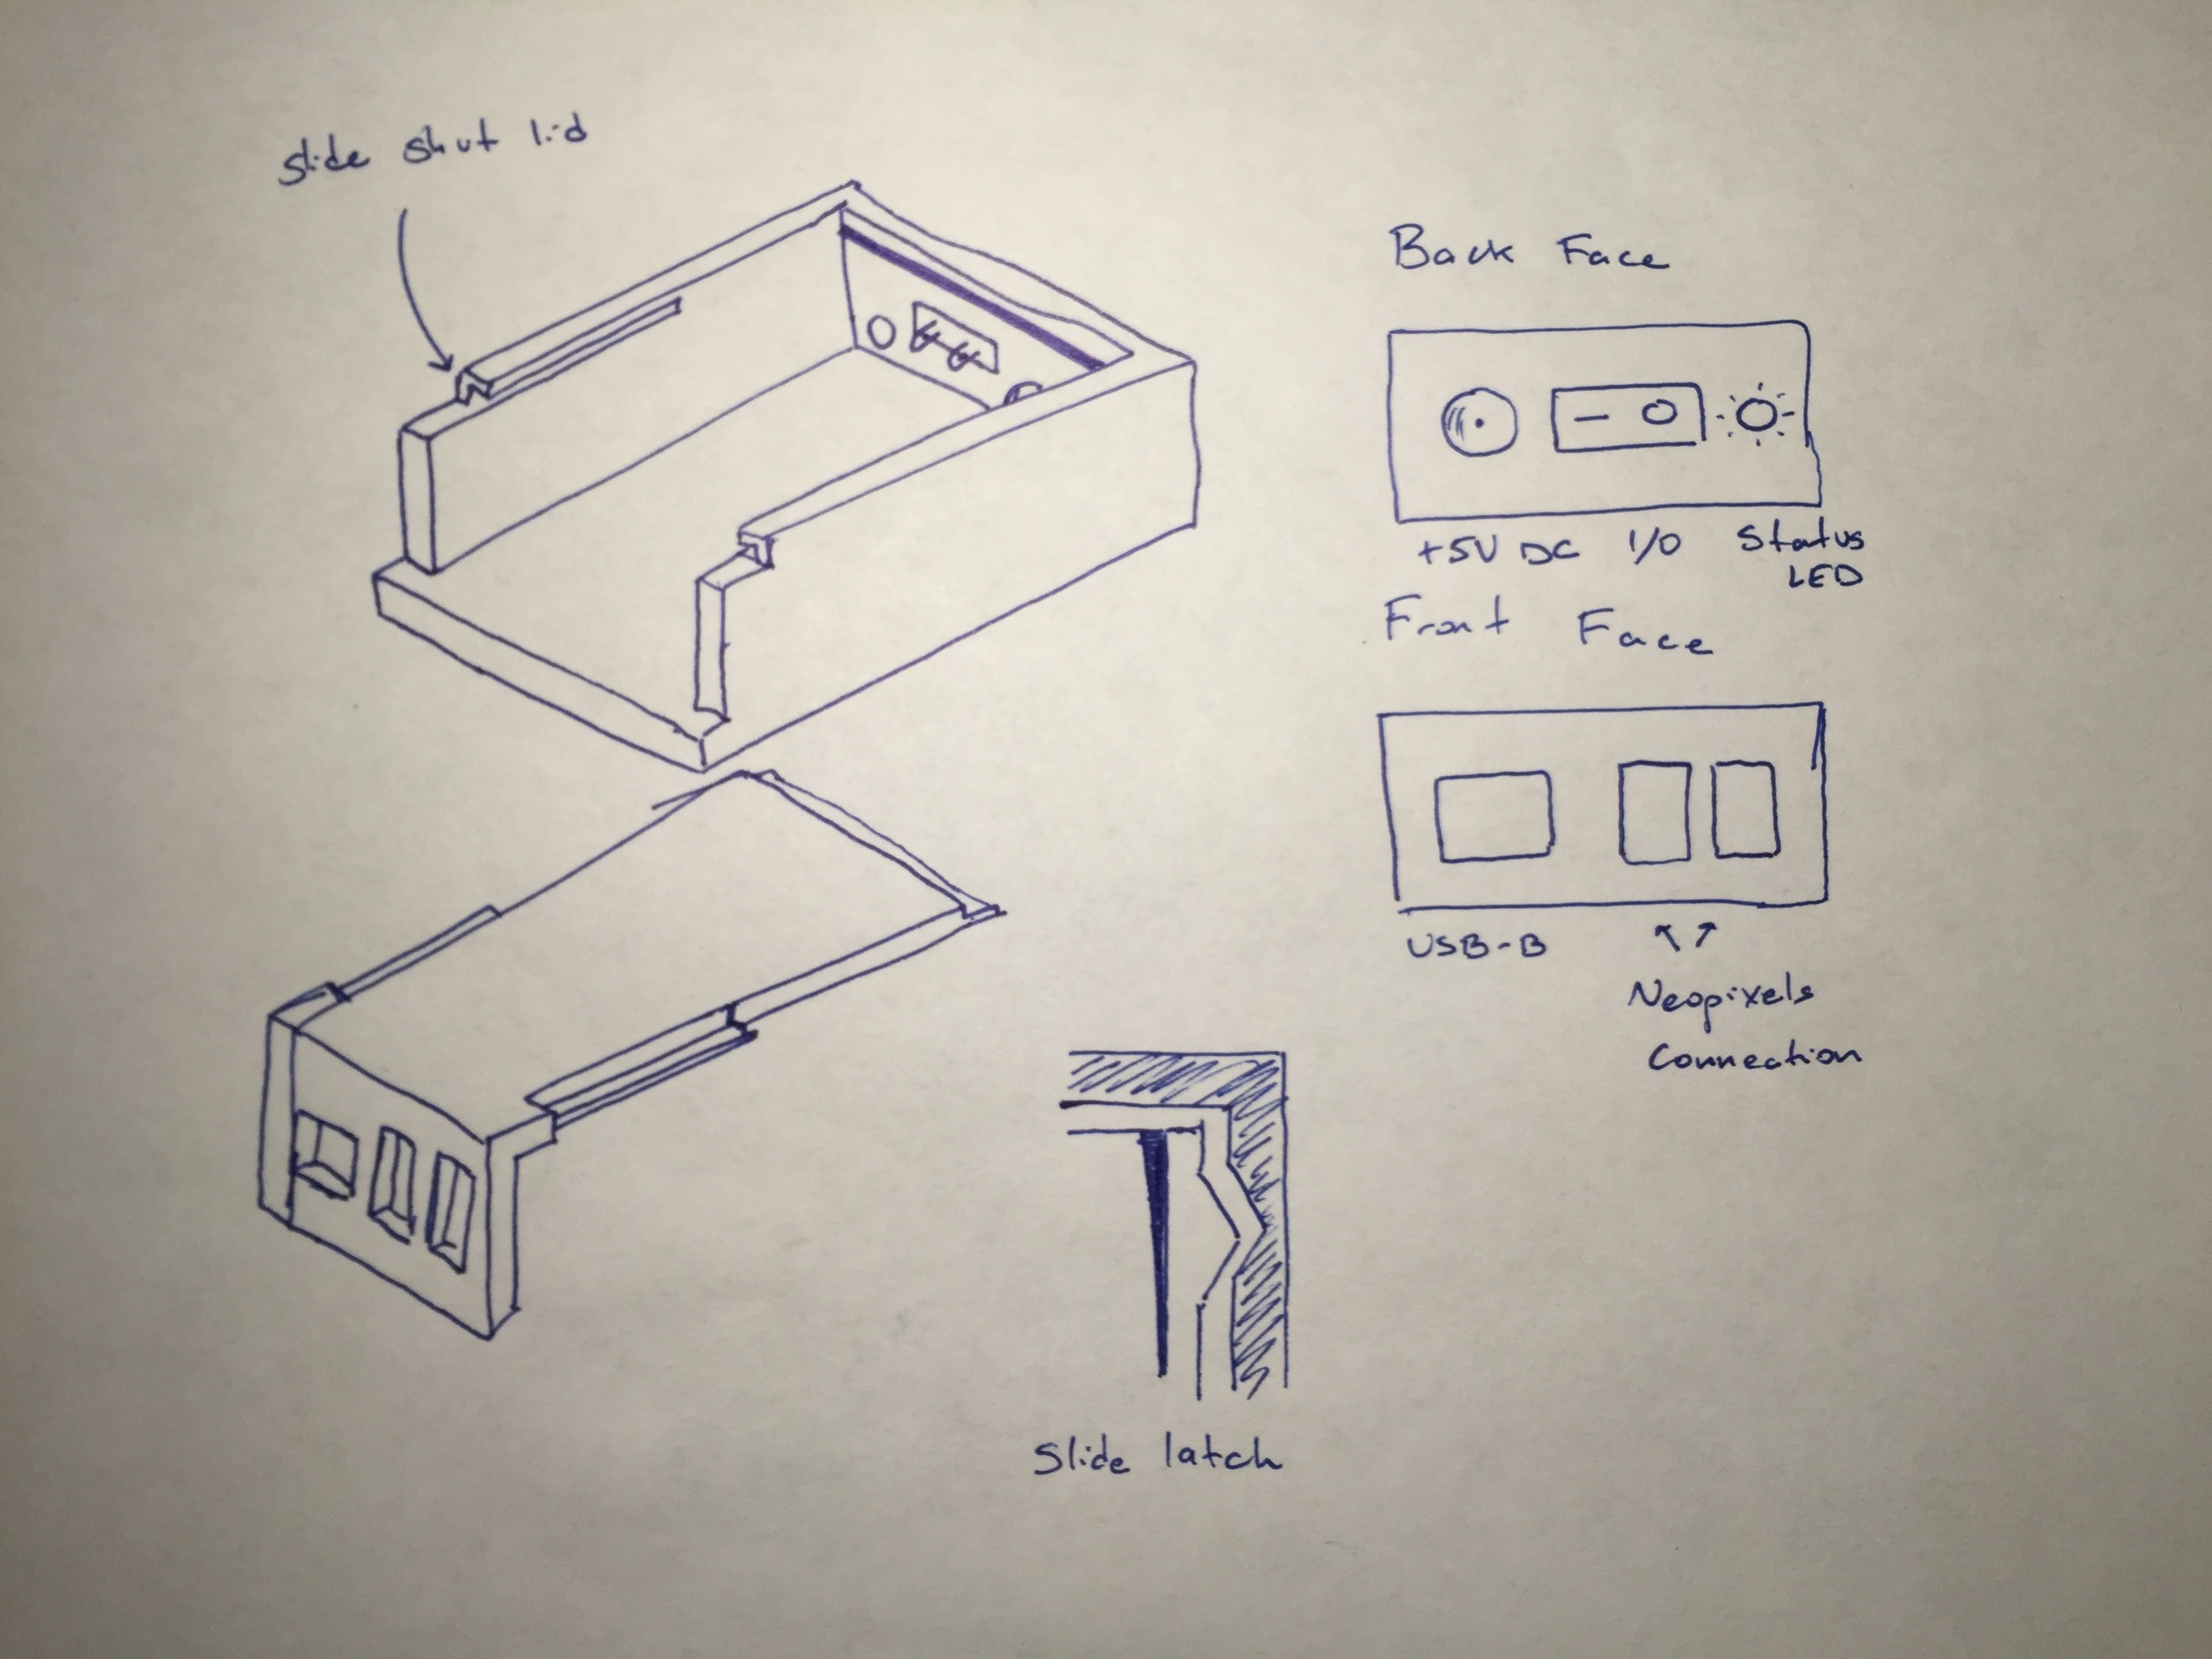 Slide shut lid
Back Face
+5V DC I/O Status
LED
Front Face
USB-B
Neopixels
Connection
Slide latch